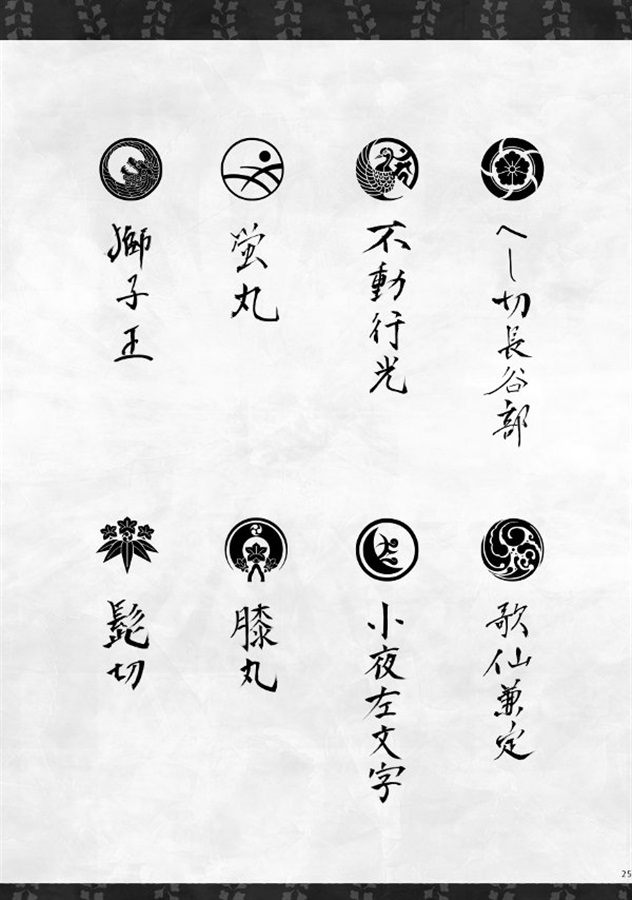 へし切長谷部
不動行光
蛍丸
獅子王
歌仙兼定
小夜左文字
膝丸
髭切
25